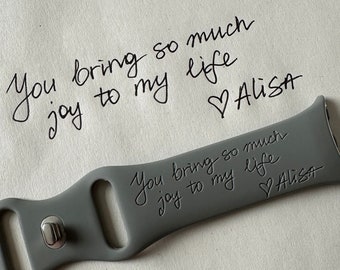 You bring so much
joy to my life
♡ALiSA
You bring so much
joy to my life
♡ALiSA